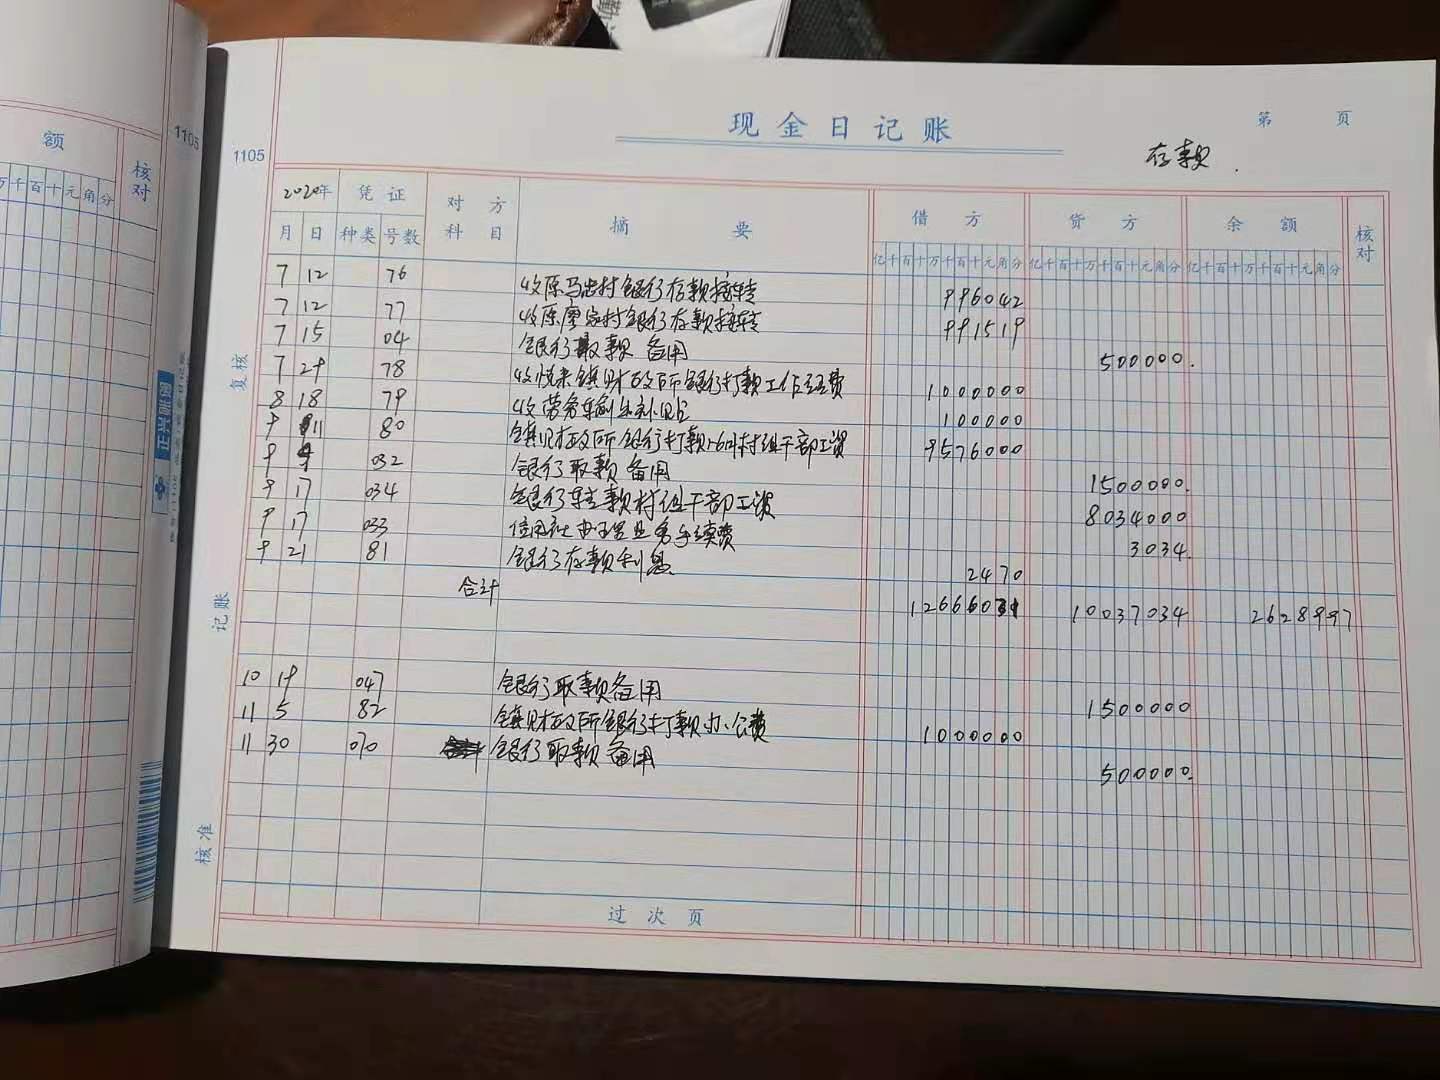 额
核对
万千百十元角分
1105
1105
现金日记账
第 页
存款.
2020年 凭证 对方科目 摘要 借方 贷方 余额 核对
月 日 种类 号数 亿千百十万千百十元角分 亿千百十万千百十元角分 亿千百十万千百十元角分
7 12 76 收原马忠村银行存款接转 996042
7 12 77 收原廖家村银行存款接转 991519
7 15 04 银行取款 备用 500000.
7 29 78 收悦来镇财政所银行打款工作经费 1000000
8 18 79 收劳务 100000
9 11 80 镇财政所银行打款1-6月村组干部工资 9576000
9 9 032 银行取款 备用 1500000.
9 17 034 银行转款村组干部工资 8034000
9 17 033 信用社电子业务手续费 3034.
9 21 81 银行存款利息 2470
合计 12666031 10037034 2628997
10 19 047 银行取款备用 1500000
11 5 82 镇财政所银行打款办公费 1000000
11 30 070 银行取款 备用 500000.
过次页
复核
记账
核准